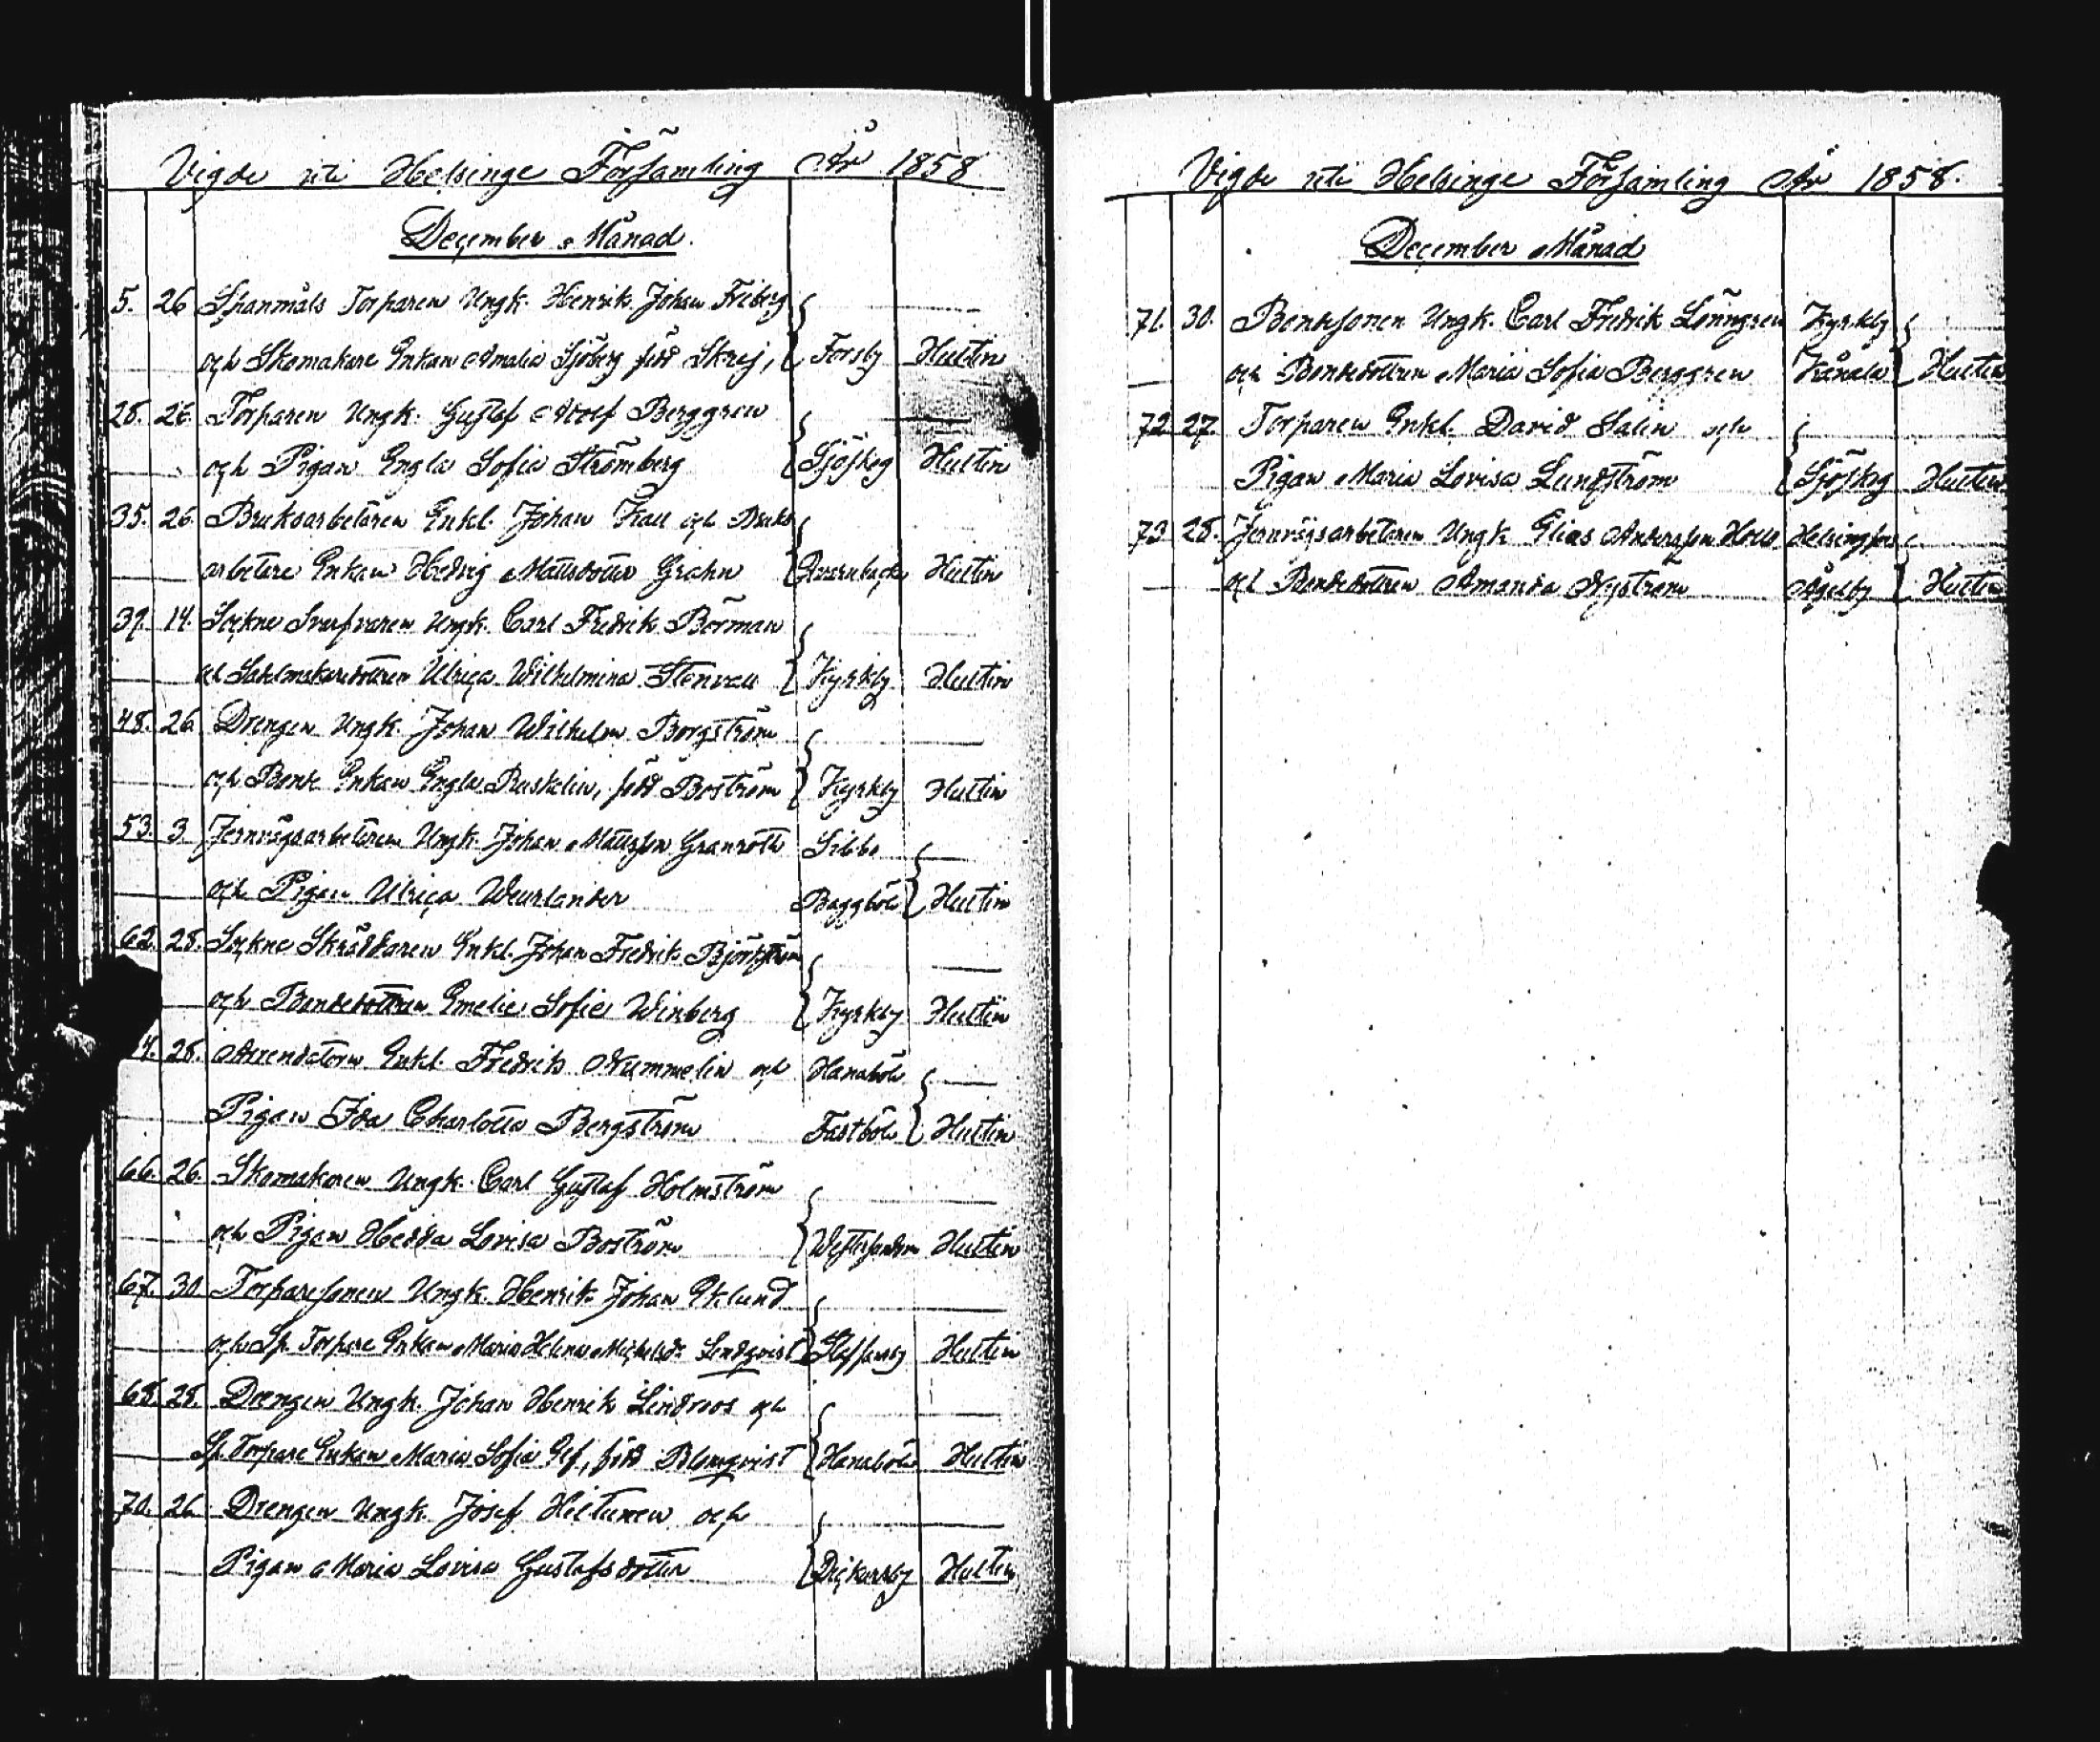 Vigde uti Helsinge Församling År 1858
December Månad.
5. 26 Spanmåls Torparen Ungk. Henrik Johan Friberg
och Skomakare Enkan Amalia Sjöberg född Skrej, Forsby Hultin
28. 26 Torparen Ungk. Gustaf Adolf Berggren
och Pigan Engla Sofia Strömberg Sjöskog Hultin
35. 26. Bruksarbetaren Enkl. Johan Kall och Bruks
arbetare Enkan Hedvig Mattsdotter Grahn Qvarnbacka Hultin
39. 14. Sockne Svarfvaren Ungk. Carl Fredrik Börman
och Sadelmakaredottren Ulrica Wilhelmina Stenvall Kyrkby Hultin
48. 26. Drengen Ungk. Johan Wilhelm Borgström
och Bonde Enkan Engla Buskelin, född Boström Kyrkby Hultin
53. 3. Jernvägsarbetaren Ungk. Johan Mattsson Granroth Sibbo
och Pigan Ulrica Weurlander Baggböle Hultin
62. 28. Sockne Skräddaren Enkl. Johan Fredrik Björkström
och Bondedottren Emelie Sofie Winberg Kyrkby Hultin
4. 28. Arrendatorn Enkl. Fredrik Nummelin och Hanaböle
Pigan Ida Charlotta Bergström Fastböle Hultin
66. 26. Skomakaren Ungk. Carl Gustaf Holmström
och Pigan Hedda Lovisa Boström Westersundom Hultin
67. 30 Torparesonen Ungk. Henrik Johan Eklund
och Sp. Torpare Enkan Maria Helena Michelsdr Lindqvist Staffansby Hultin
68. 28. Drengen Ungk. Johan Henrik Lindroos och
Sp. Torpare Enkan Maria Sofia Elf, född Blomqvist Hanaböle Hultin
70. 26 Drengen Ungk. Josef Hiltunen och
Pigan Maria Lovisa Gustafsdotter Dickursby Hultin
Vigde uti Helsinge Församling År 1858.
December Månad
71. 30. Bondesonen Ungk. Carl Fredrik Lönngren Kyrkby
och Bondedottren Maria Sofia Berggren Kånala Hultin
72 27. Torparen Enkl. David Salin och
Pigan Maria Lovisa Lundström Sjöskog Hultin
73 28. Jernvägsarbetaren Ungk. Elias Andersson Helsingfors
och Bondedottren Amanda Nyström Åggelby Hultin